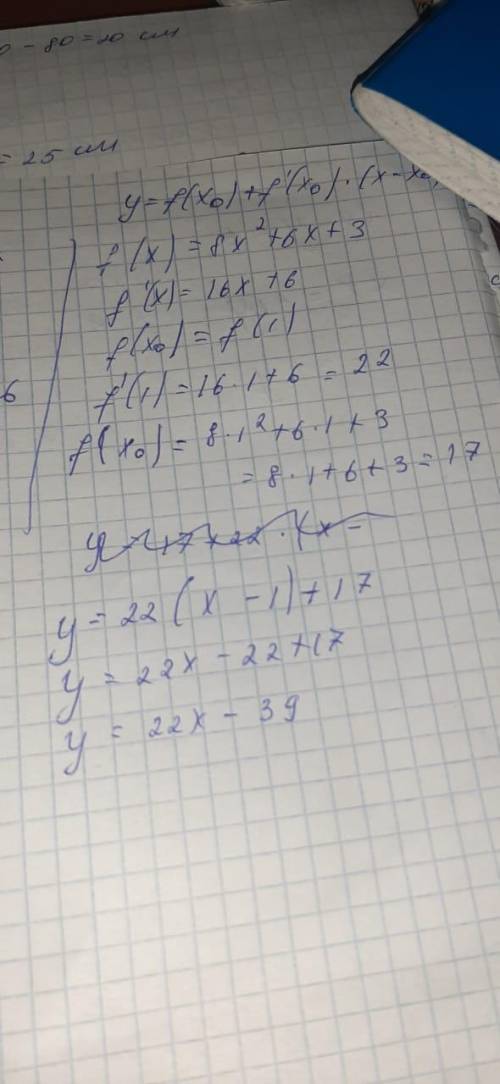 - 80 = 20 см
= 25 см
y = f(x₀) + f'(x₀) · (x - x₀
f(x) = 8x² + 6x + 3
f'(x) = 16x + 6
f(x₀) = f(1)
6
f'(1) = 16 · 1 + 6 = 22
f(x₀) = 8 · 1² + 6 · 1 + 3
= 8 · 1 + 6 + 3 = 17
y = 17 + 22 · (x -
y = 22(x - 1) + 17
y = 22x - 22 + 17
y = 22x - 39